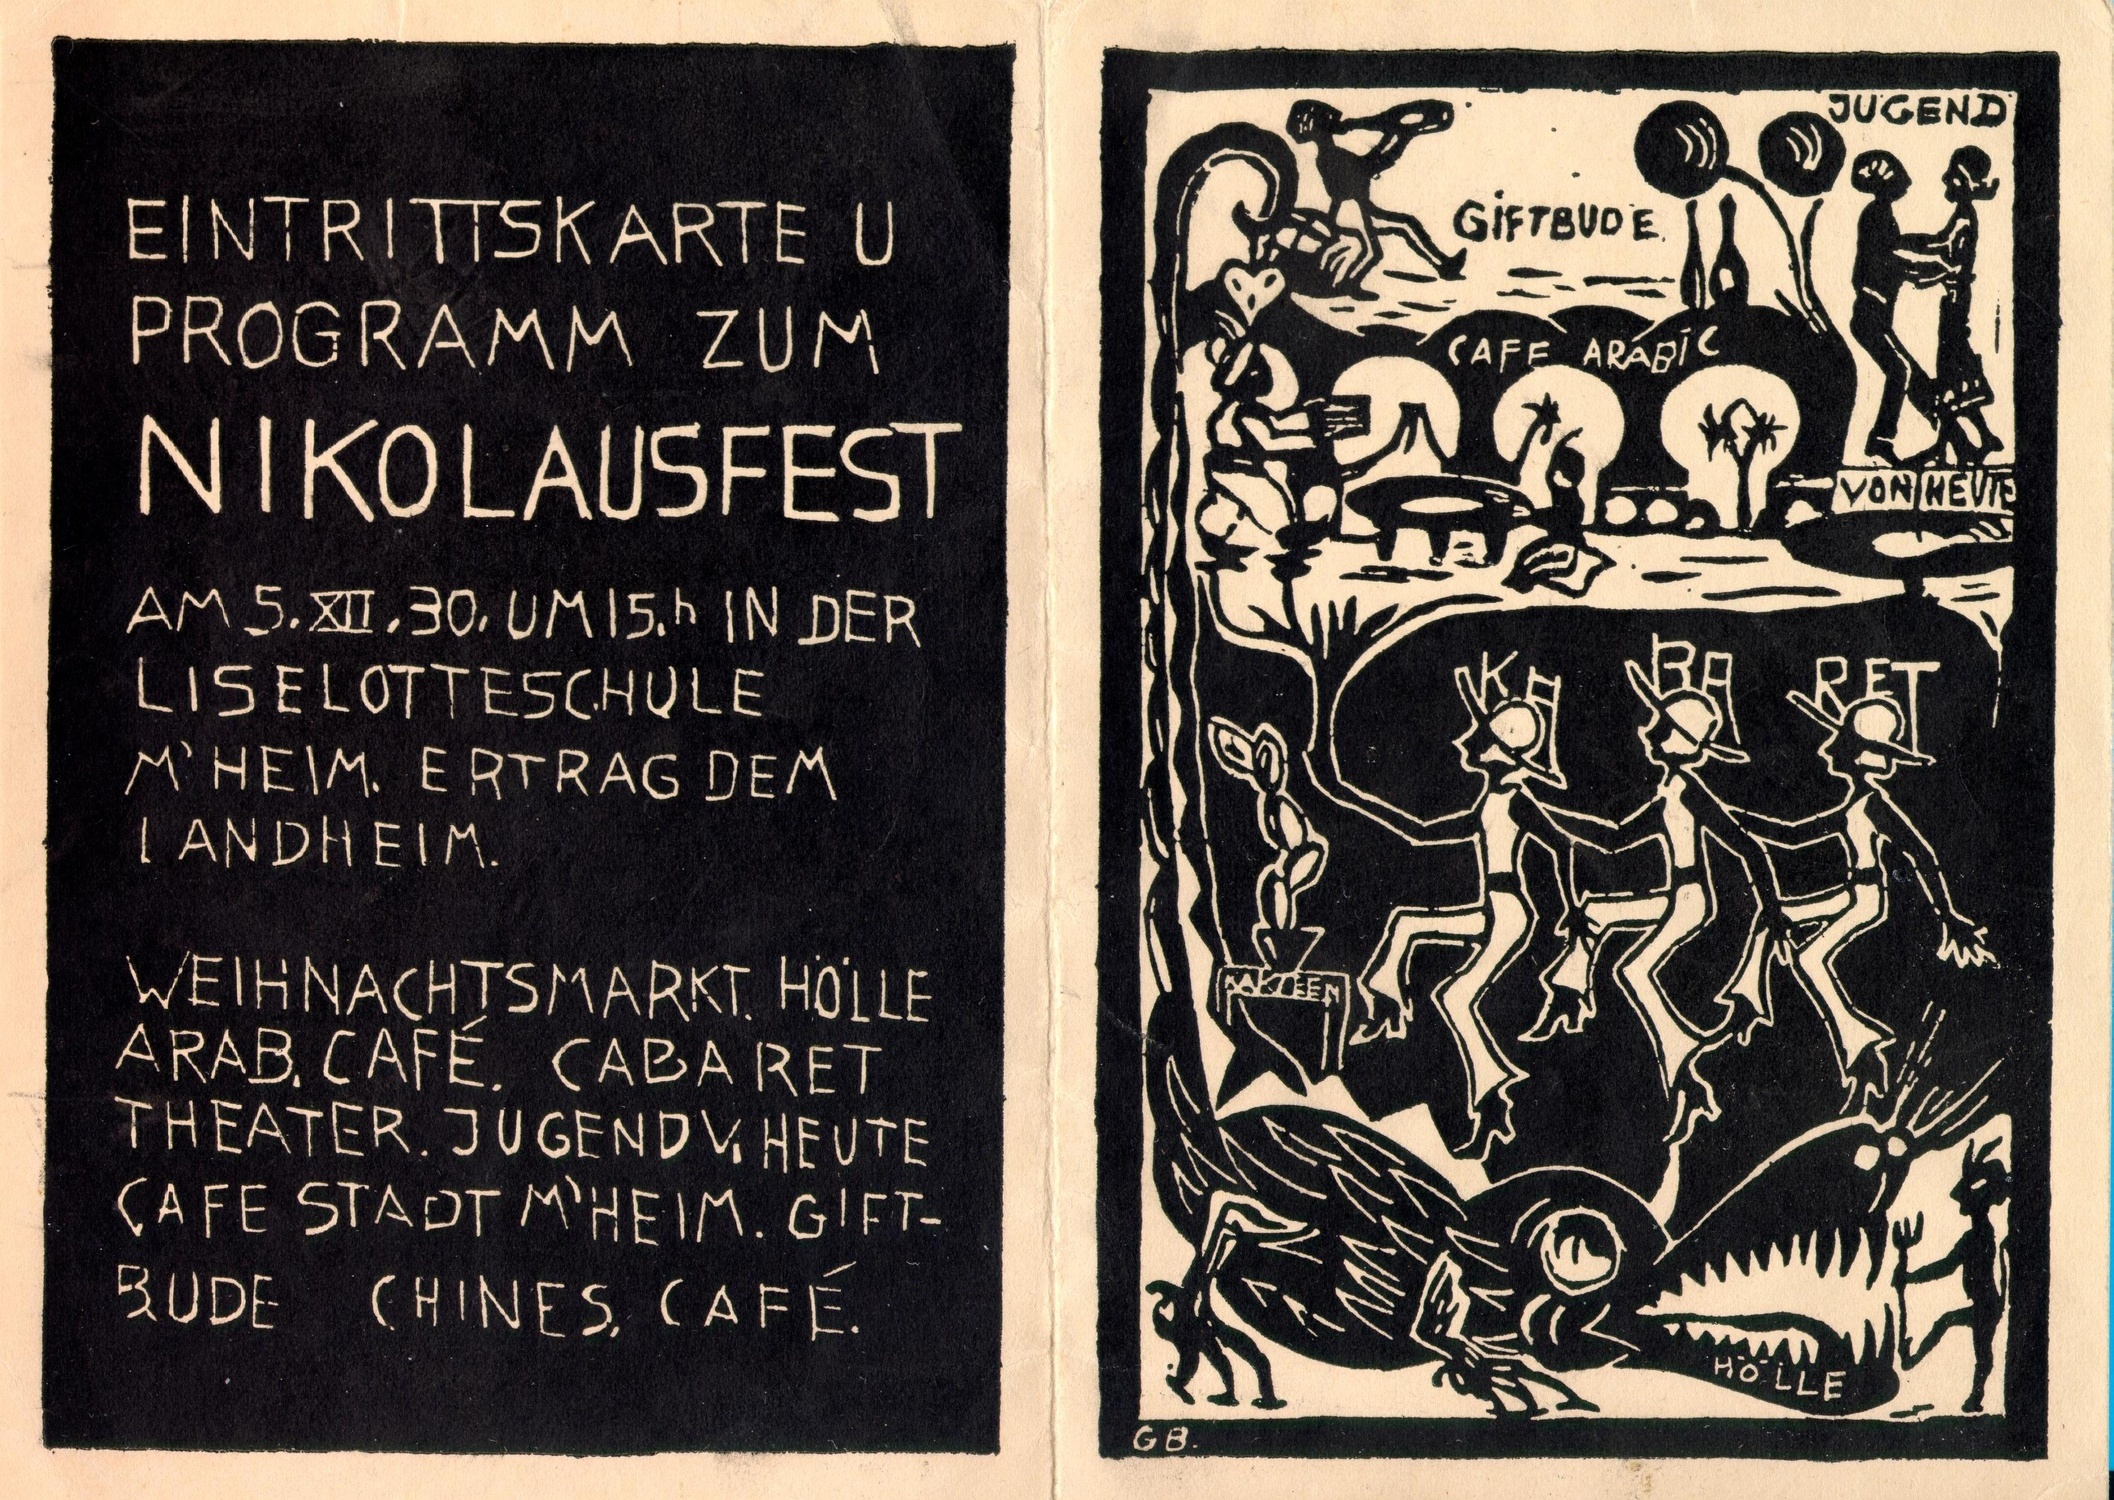 EINTRITTSKARTE U
PROGRAMM ZUM
NIKOLAUSFEST
AM 5. XII. 30. UM 15.h IN DER
LISELOTTESCHULE
M'HEIM. ERTRAG DEM
LANDHEIM.
WEIHNACHTSMARKT. HÖLLE
ARAB. CAFÉ. CABARET
THEATER. JUGEND V. HEUTE
CAFE STADT M'HEIM. GIFT-
BUDE CHINES. CAFÉ.
JUGEND
GIFTBUDE.
CAFE ARABIC
VON HEUTE
KA BA RET
KAKTEEN
HÖLLE
GB.